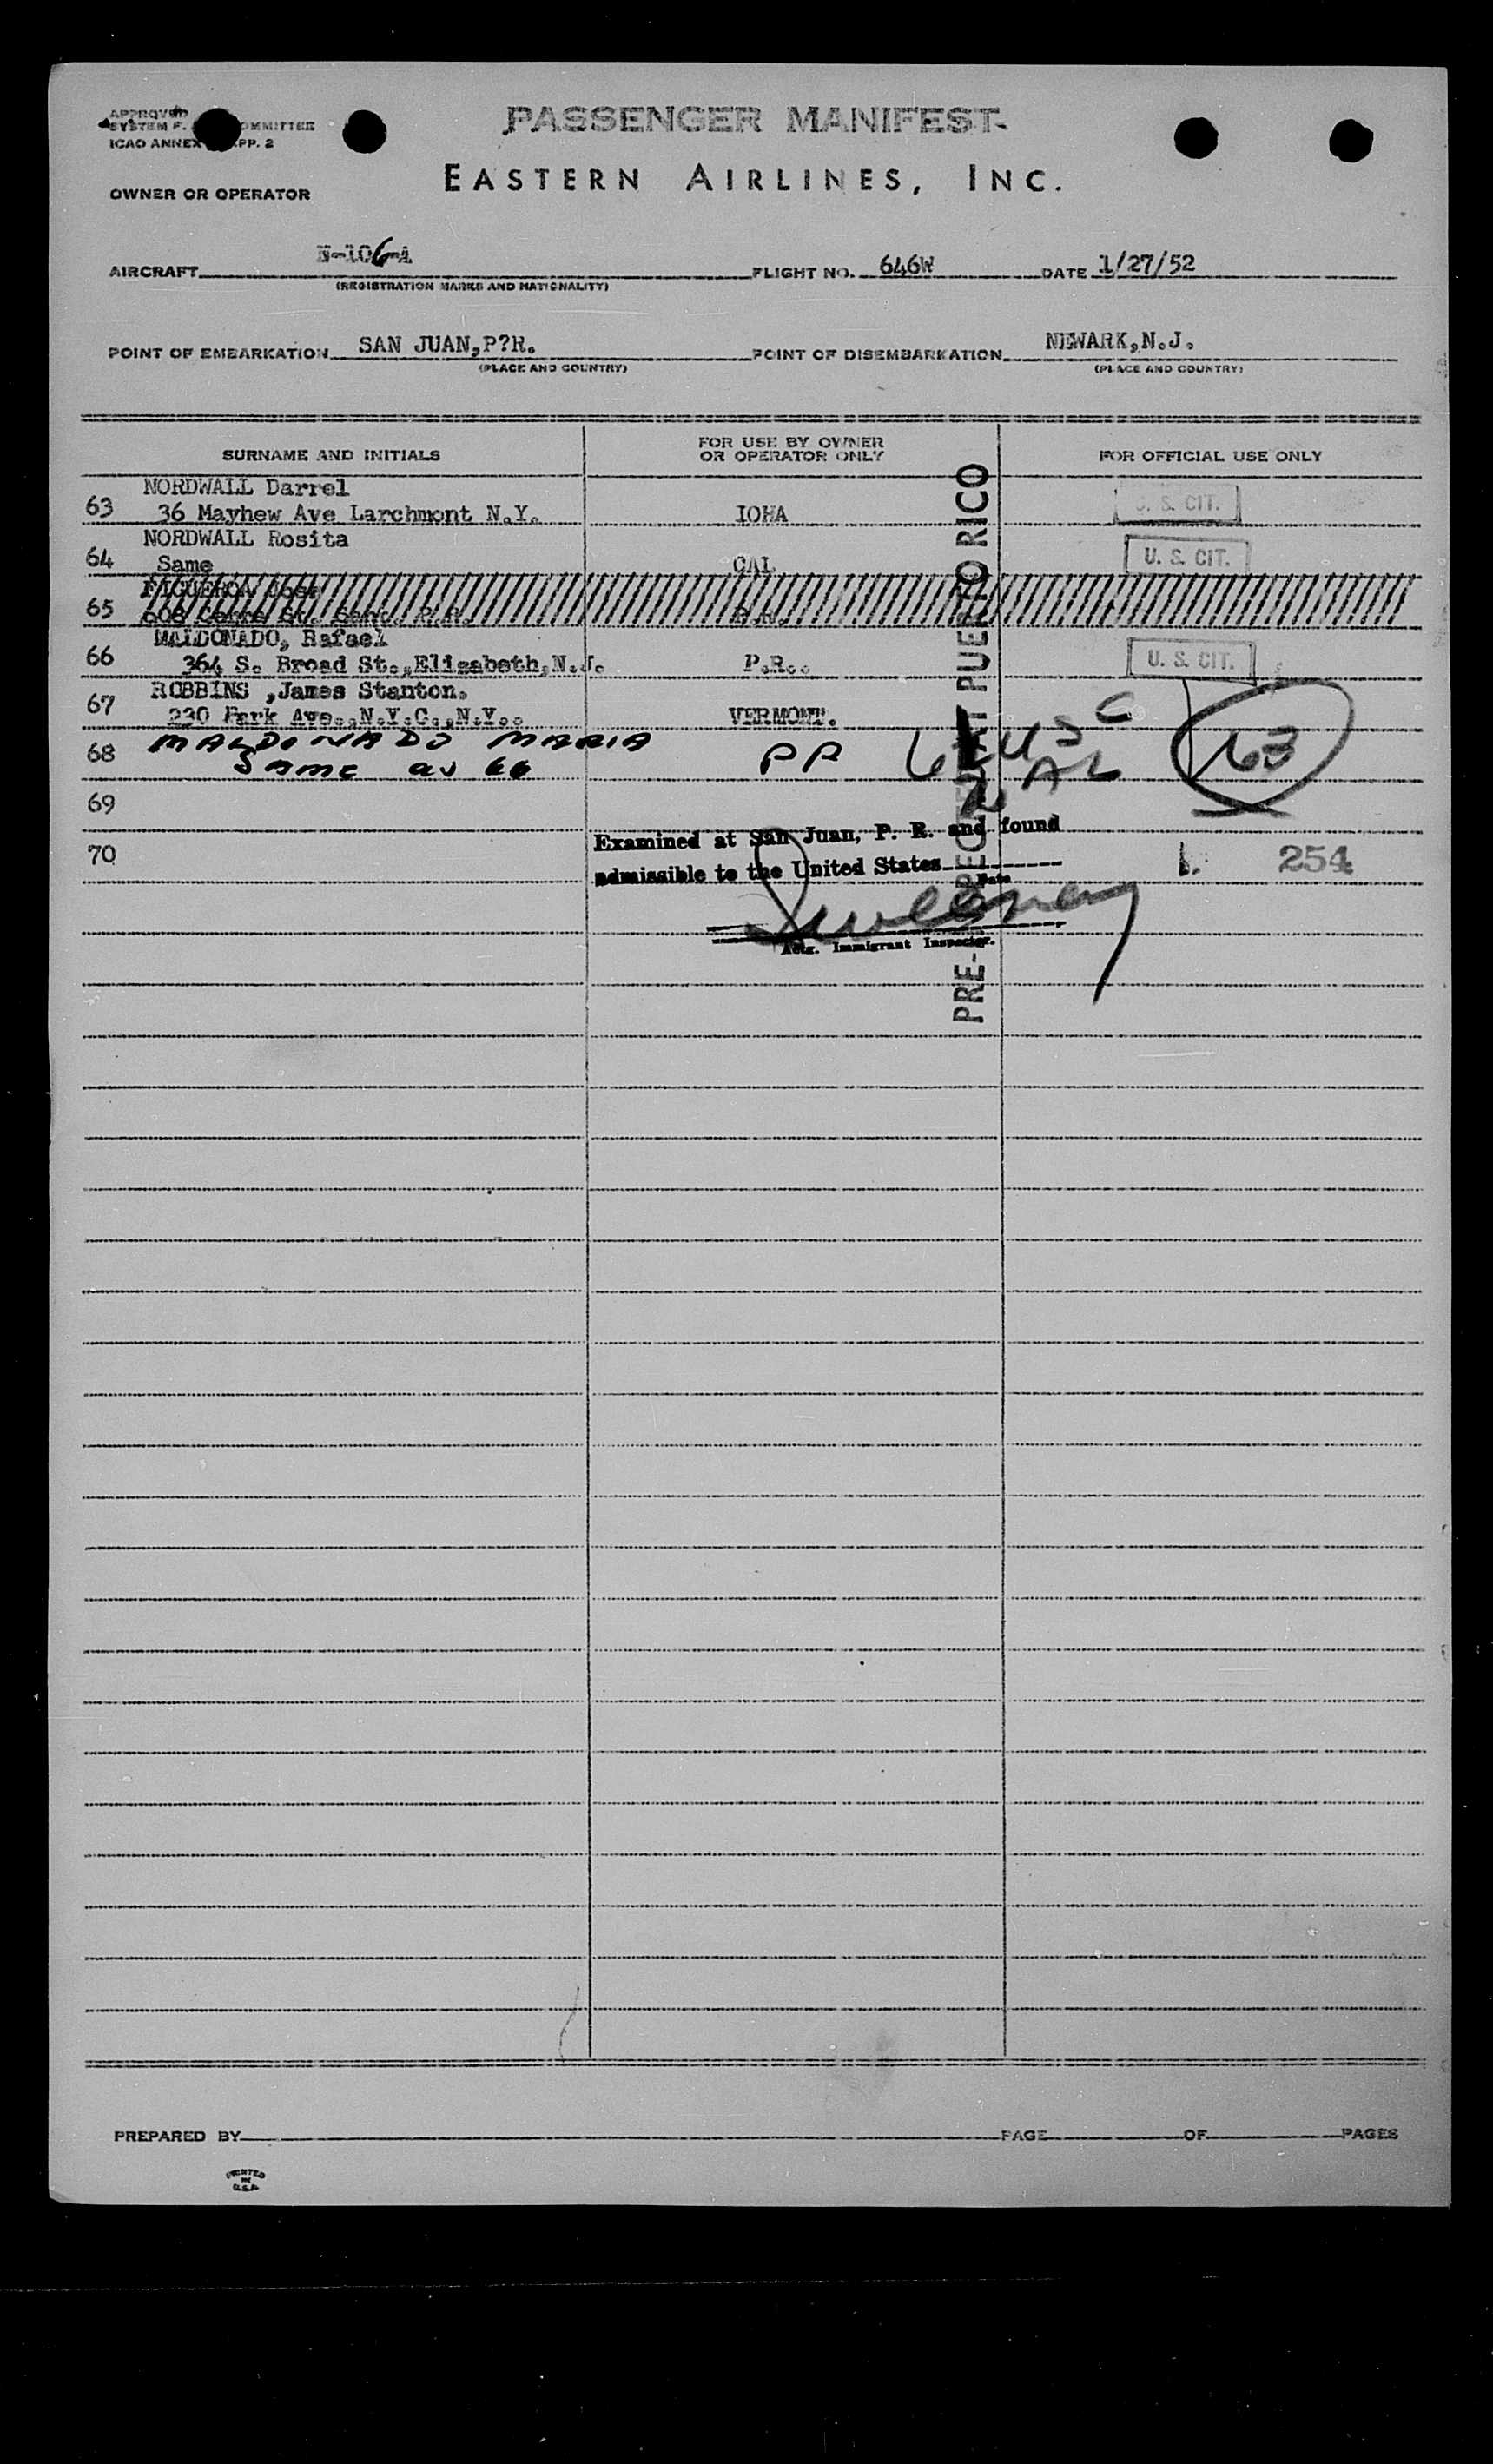 PASSENGER MANIFEST
APPROVED
SYSTEM F. COMMITTEE
ICAO ANNEX APP. 2
EASTERN AIRLINES, INC.
OWNER OR OPERATOR
AIRCRAFT N-106-A FLIGHT NO. 646W DATE 1/27/52
(REGISTRATION MARKS AND NATIONALITY)
POINT OF EMBARKATION SAN JUAN,P?R. POINT OF DISEMBARKATION NEWARK,N.J.
(PLACE AND COUNTRY) (PLACE AND COUNTRY)
SURNAME AND INITIALS FOR USE BY OWNER OR OPERATOR ONLY FOR OFFICIAL USE ONLY
NORDWALL Darrel
63 36 Mayhew Ave Larchmont N.Y. IOHA U. S. CIT.
NORDWALL Rosita
64 Same CAL U. S. CIT.
FIGUEROA Jose
65 608 St. Sant. P.R. P.R.
MALDONADO, Rafael
66 364 S. Broad St.,Elizabeth,N.J. P.R.. U. S. CIT.
ROBBINS ,James Stanton.
67 230 Park Ave.,N.Y.C.,N.Y.. VERMONT. USC
68 MALDONADO MARIA PR 63
Same as 66
69
Examined at San Juan, P. R. and found
70 admissible to the United States 254
Date
Actg. Immigrant Inspector.
PUERTO RICO
PREPARED BY PAGE OF PAGES
PRINTED
IN
U.S.A.